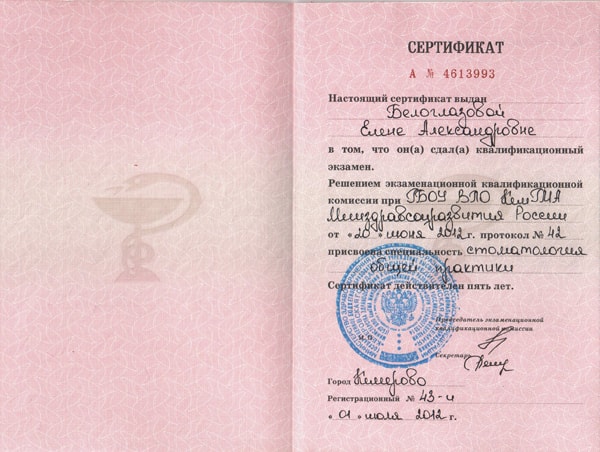 СЕРТИФИКАТ
А № 4613993
Настоящий сертификат выдан
Белоглазовой
Елене Александровне
в том, что он(а) сдал(а) квалификационный
экзамен.
Решением экзаменационной квалификационной
комиссии при ГБОУ ВПО КемГМА
Минздравсоцразвития России
от «20» июня 2012 г. протокол № 42
присвоена специальность стоматология
общей практики
Сертификат действителен пять лет.
Председатель экзаменационной
квалификационной комиссии
М.П.
Секретарь
Город Кемерово
Регистрационный № 43-и
«01» июля 2012 г.